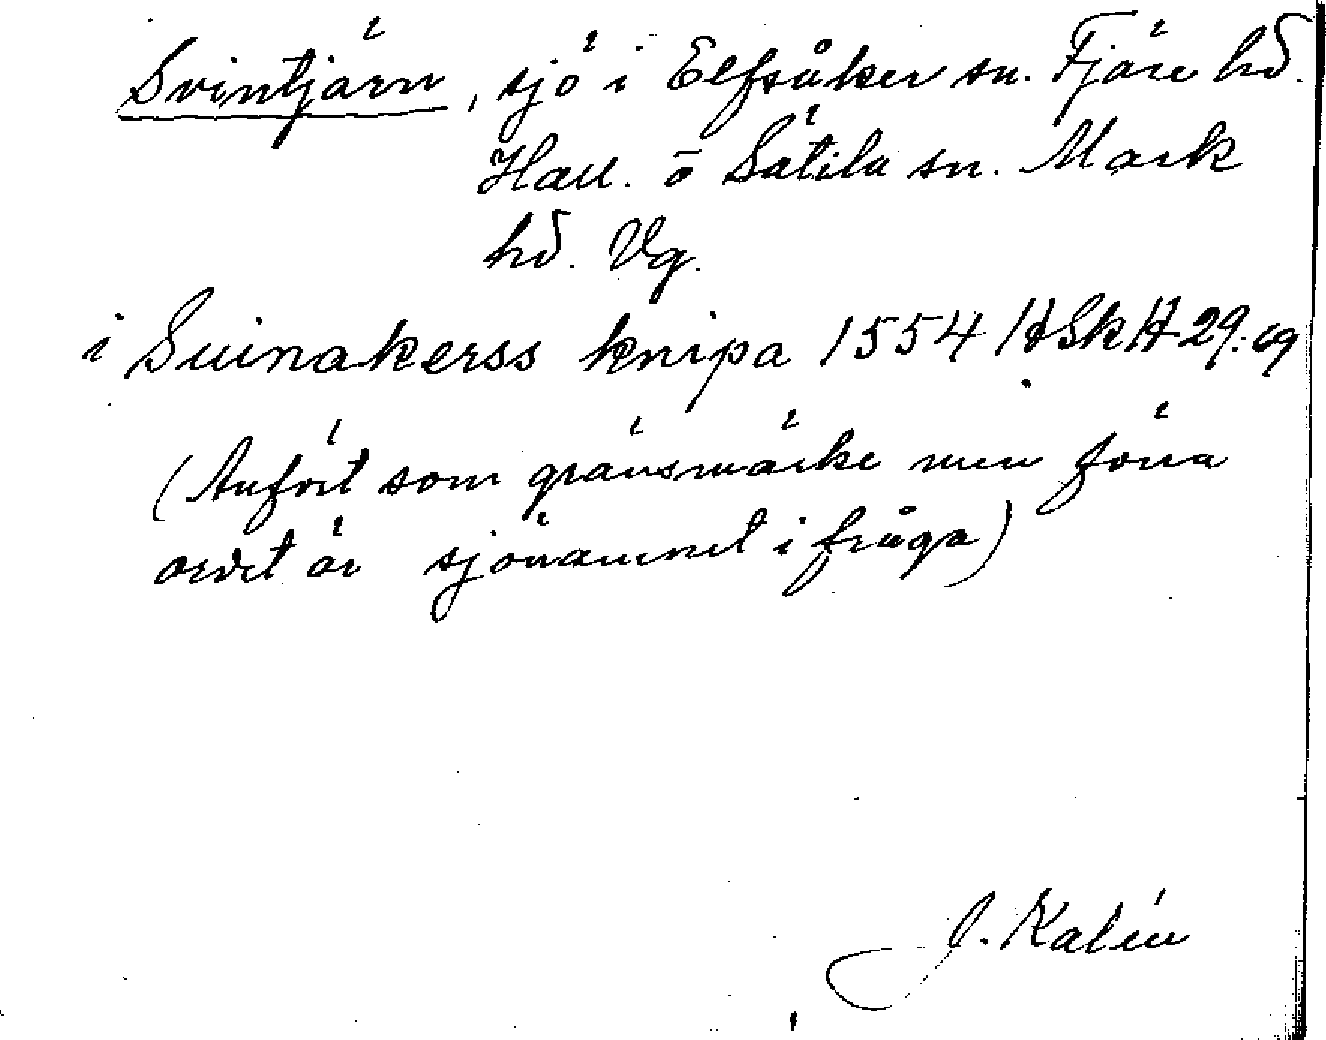 Svintjärn, sjö i Elfsåker sn. Fjäre hd.
Hall. o Sätila sn. Mark
hd. Vg.
i Suinakerss knipa 1554 HSkH 29:69
(Anfört som gränsmärke men förra
ordet är sjönamnet i fråga)
J. Kalén